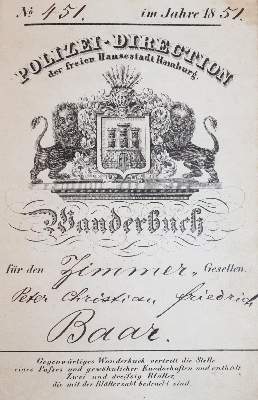 No 451. im Jahre 1851.
POLIZEI-DIRECTION
der freien Hansestadt Hamburg.
Wanderbuch
für den Zimmer- Gesellen.
Peter Christian Friedrich
Baar.
Gegenwärtiges Wanderbuch vertritt die Stelle
eines Passes und gewöhnlicher Kundschaften und enthält
Zwei und dreißig Blätter,
die mit der Blätterzahl bedruckt sind.